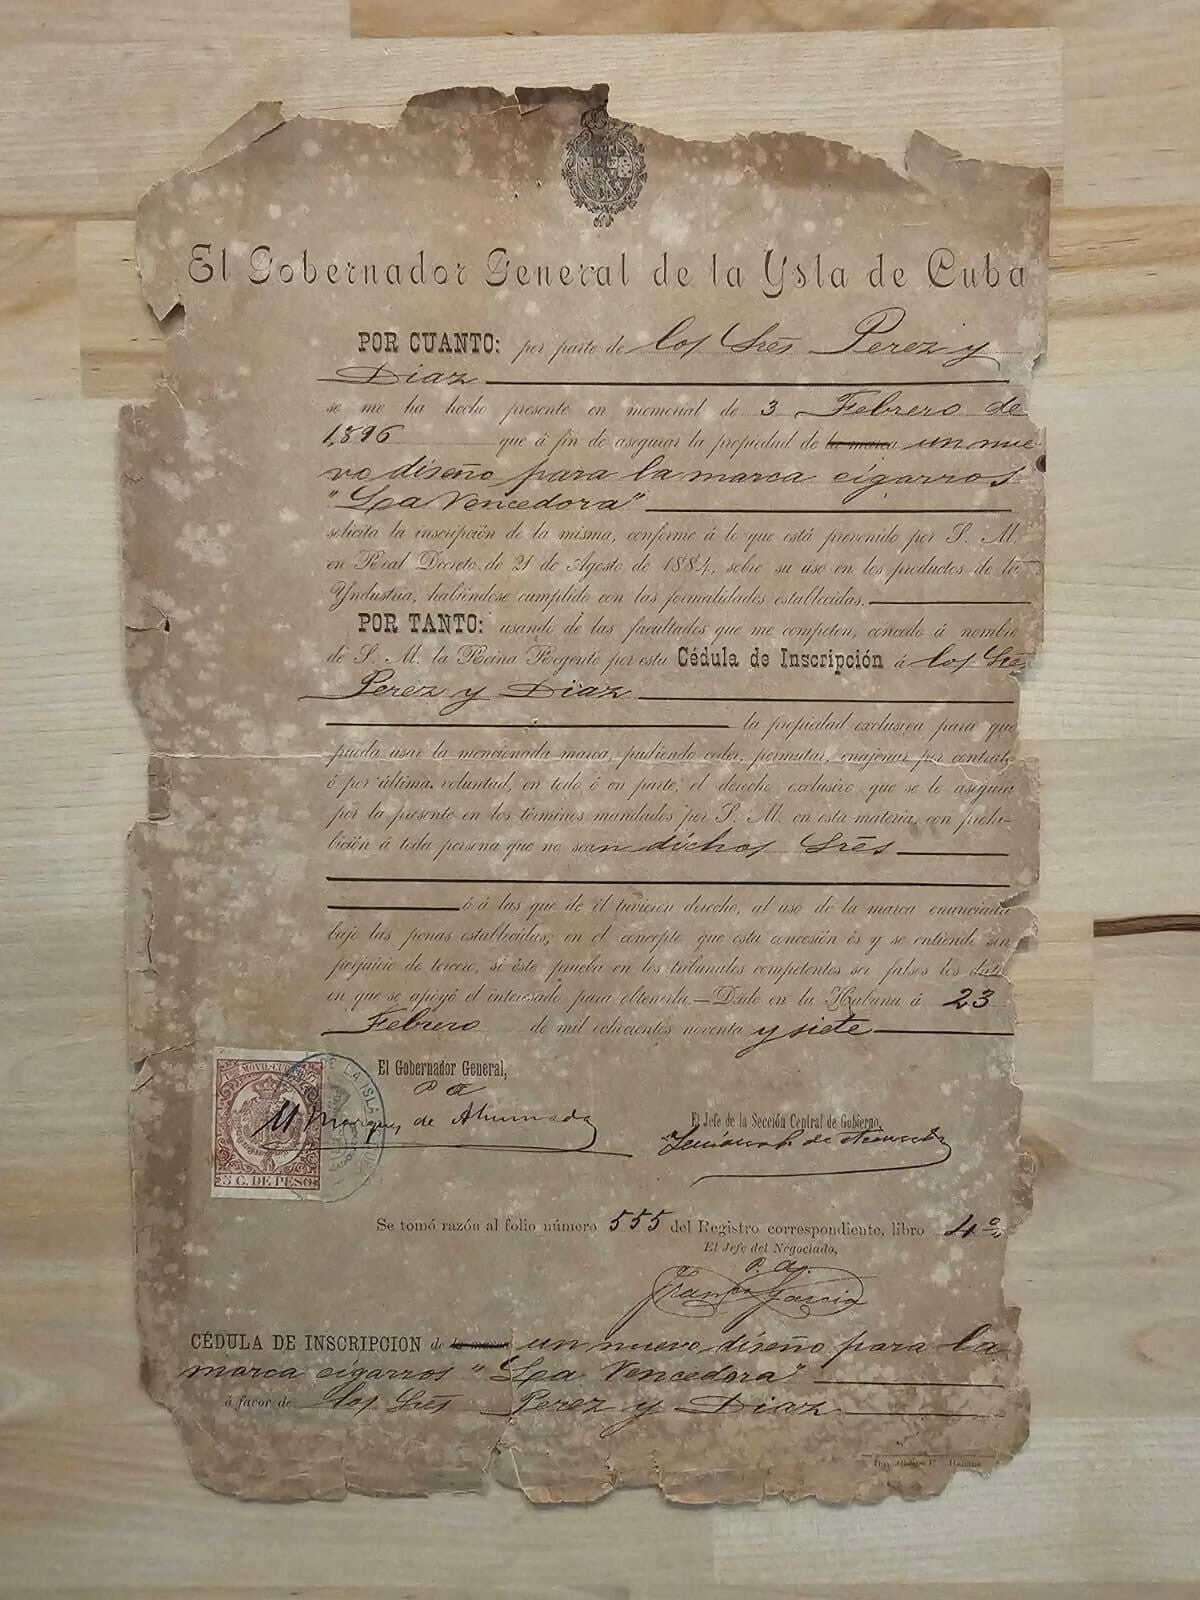 El Gobernador General de la Ysla de Cuba
POR CUANTO: por parte de los Srēs Perez y
Diaz
se me ha hecho presente en memorial de 3 Febrero de
1,896 que á fin de asegurar la propiedad de la marca un nue
vo diseño para la marca cigarros
"La Vencedora"
solicita la inscripción de la misma, conforme á lo que está prevenido por S. M.
en Real Decreto de 21 de Agosto de 1884, sobre su uso en los productos de la
Yndustria, habiéndose cumplido con las formalidades establecidas.
POR TANTO: usando de las facultades que me competen, concedo á nombre
de S. M. la Reina Regente por esta Cédula de Inscripción á los Srēs
Perez y Diaz
la propiedad exclusiva para que
pueda usar la mencionada marca, pudiendo ceder, permutar, enajenar por contrato
ó por última voluntad, en todo ó en parte, el derecho exclusivo que se le asegura
por la presente en los términos mandados por S. M. en esta materia, con prohi-
bición á toda persona que no sean dichos Srēs
ó á las que de él tuvieren derecho, al uso de la marca enunciada
bajo las penas establecidas; en el concepto que esta concesión es y se entiende sin
perjuicio de tercero, si éste prueba en los tribunales competentes ser falsos los dat
en que se apoyó el interesado para obtenerla.—Dado en la Habana á 23
Febrero de mil ochocientos noventa y siete
El Gobernador General,
P A
El Marques de Ahumada
MOVIL
5 C. DE PESO
DE LA ISLA
El Jefe de la Sección Central de Gobierno,
Se tomó razón al folio número 555 del Registro correspondiente, libro 4º
El Jefe del Negociado,
P. A.
Franco Garcia
CÉDULA DE INSCRIPCION de la marca un nuevo diseño para la
marca cigarros "La Vencedora"
á favor de los Srēs Perez y Diaz
Habana